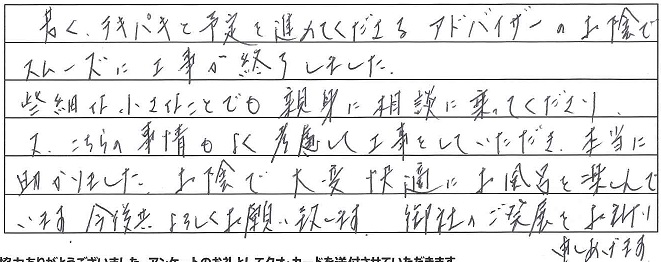 若く、テキパキと予定を進めてくださるアドバイザーのお陰で
スムーズに工事が終了しました。
些細な小さなことでも親身に相談に乗ってくださり、
又、こちらの事情もよく考慮して工事をしていただき、本当に
助かりました。お陰で大変快適にお風呂を楽しんで
います。今後共よろしくお願い致します。御社のご発展をお祈り
申しあげます。
協力ありがとうございました。アンケートのお礼としてクオ・カードを送付させていただきます。